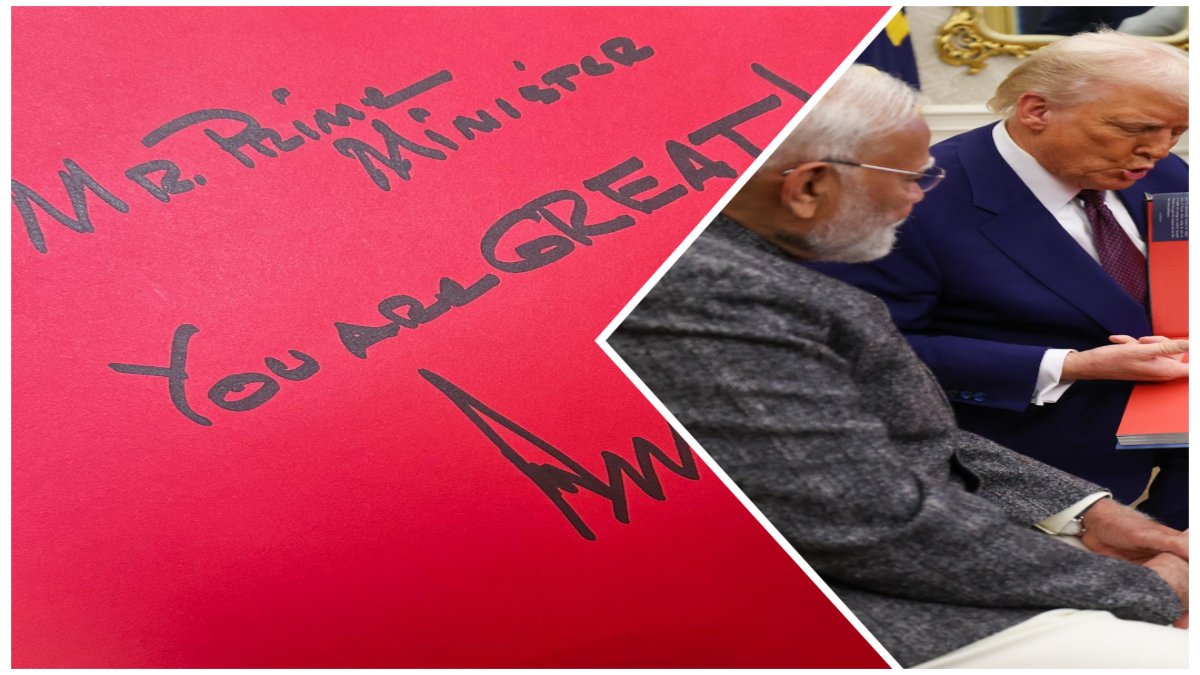 Mr. Prime
Minister
You are GREAT!